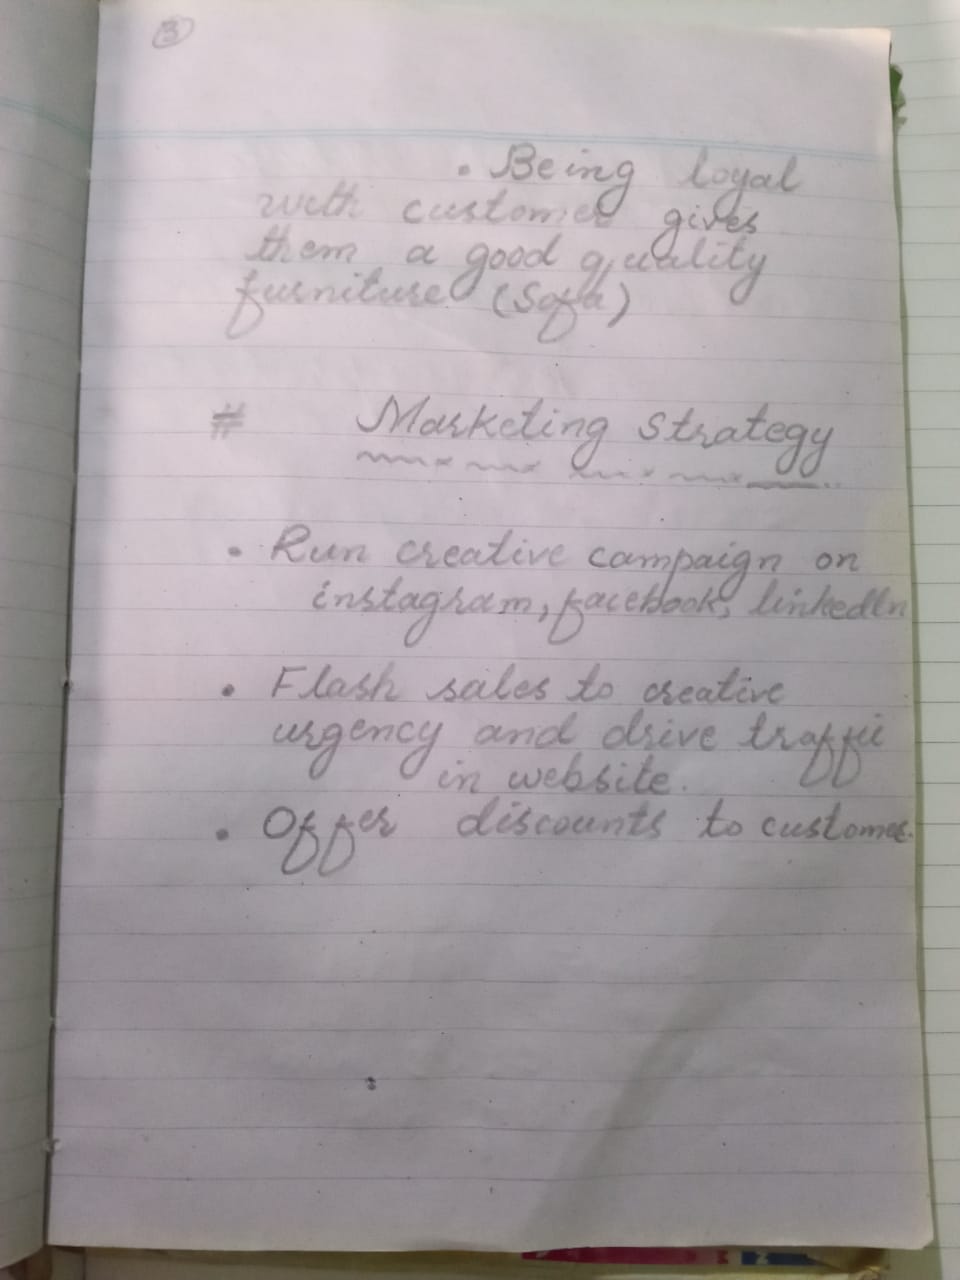 3
• Being loyal
with customer gives
them a good quality
furniture (Sofa)
# Marketing Strategy
• Run creative campaign on
instagram, facebook, linkedIn
• Flash sales to creative
urgency and drive traffic
in website.
• Offer discounts to customer.